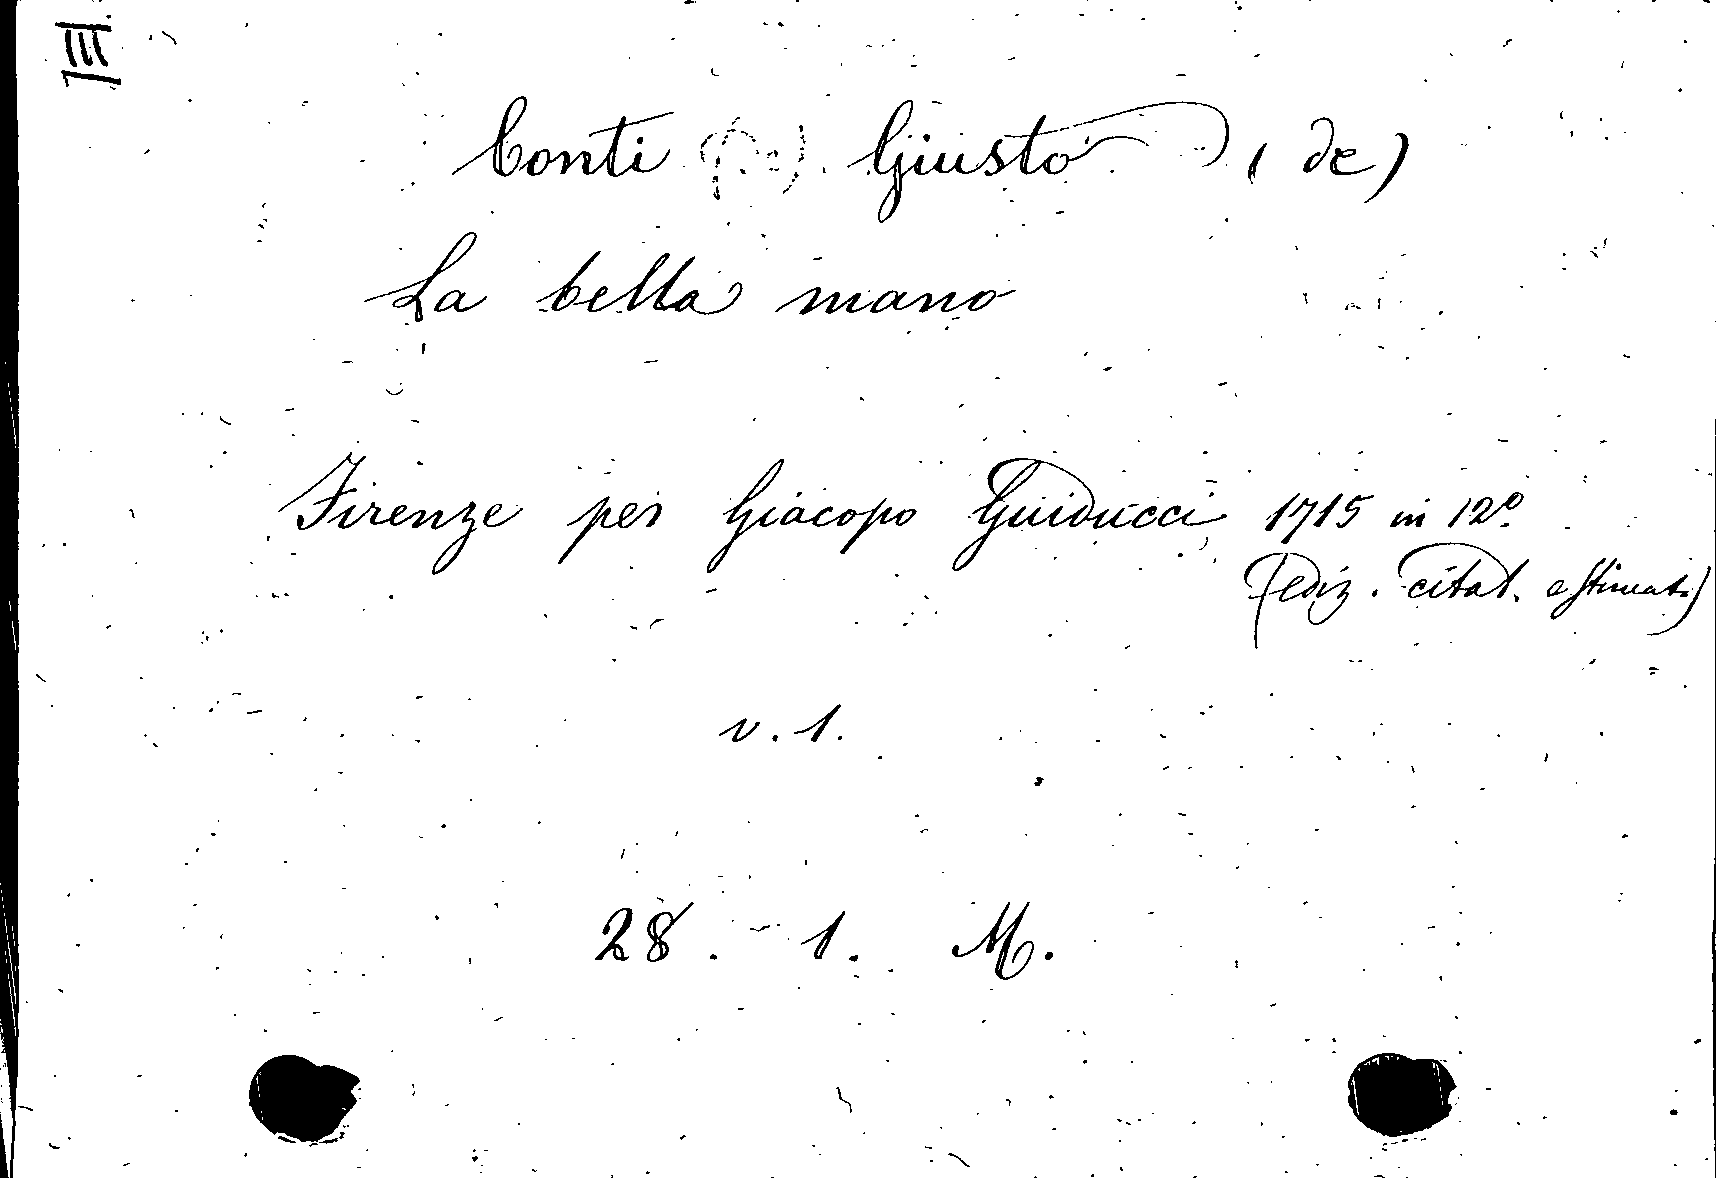 III
Conti Giusto (de)
La bella mano
Firenze per Giacopo Guiducci 1715 in 12º
(ediz. citat. e stimata)
v. 1.
28. 1. M.